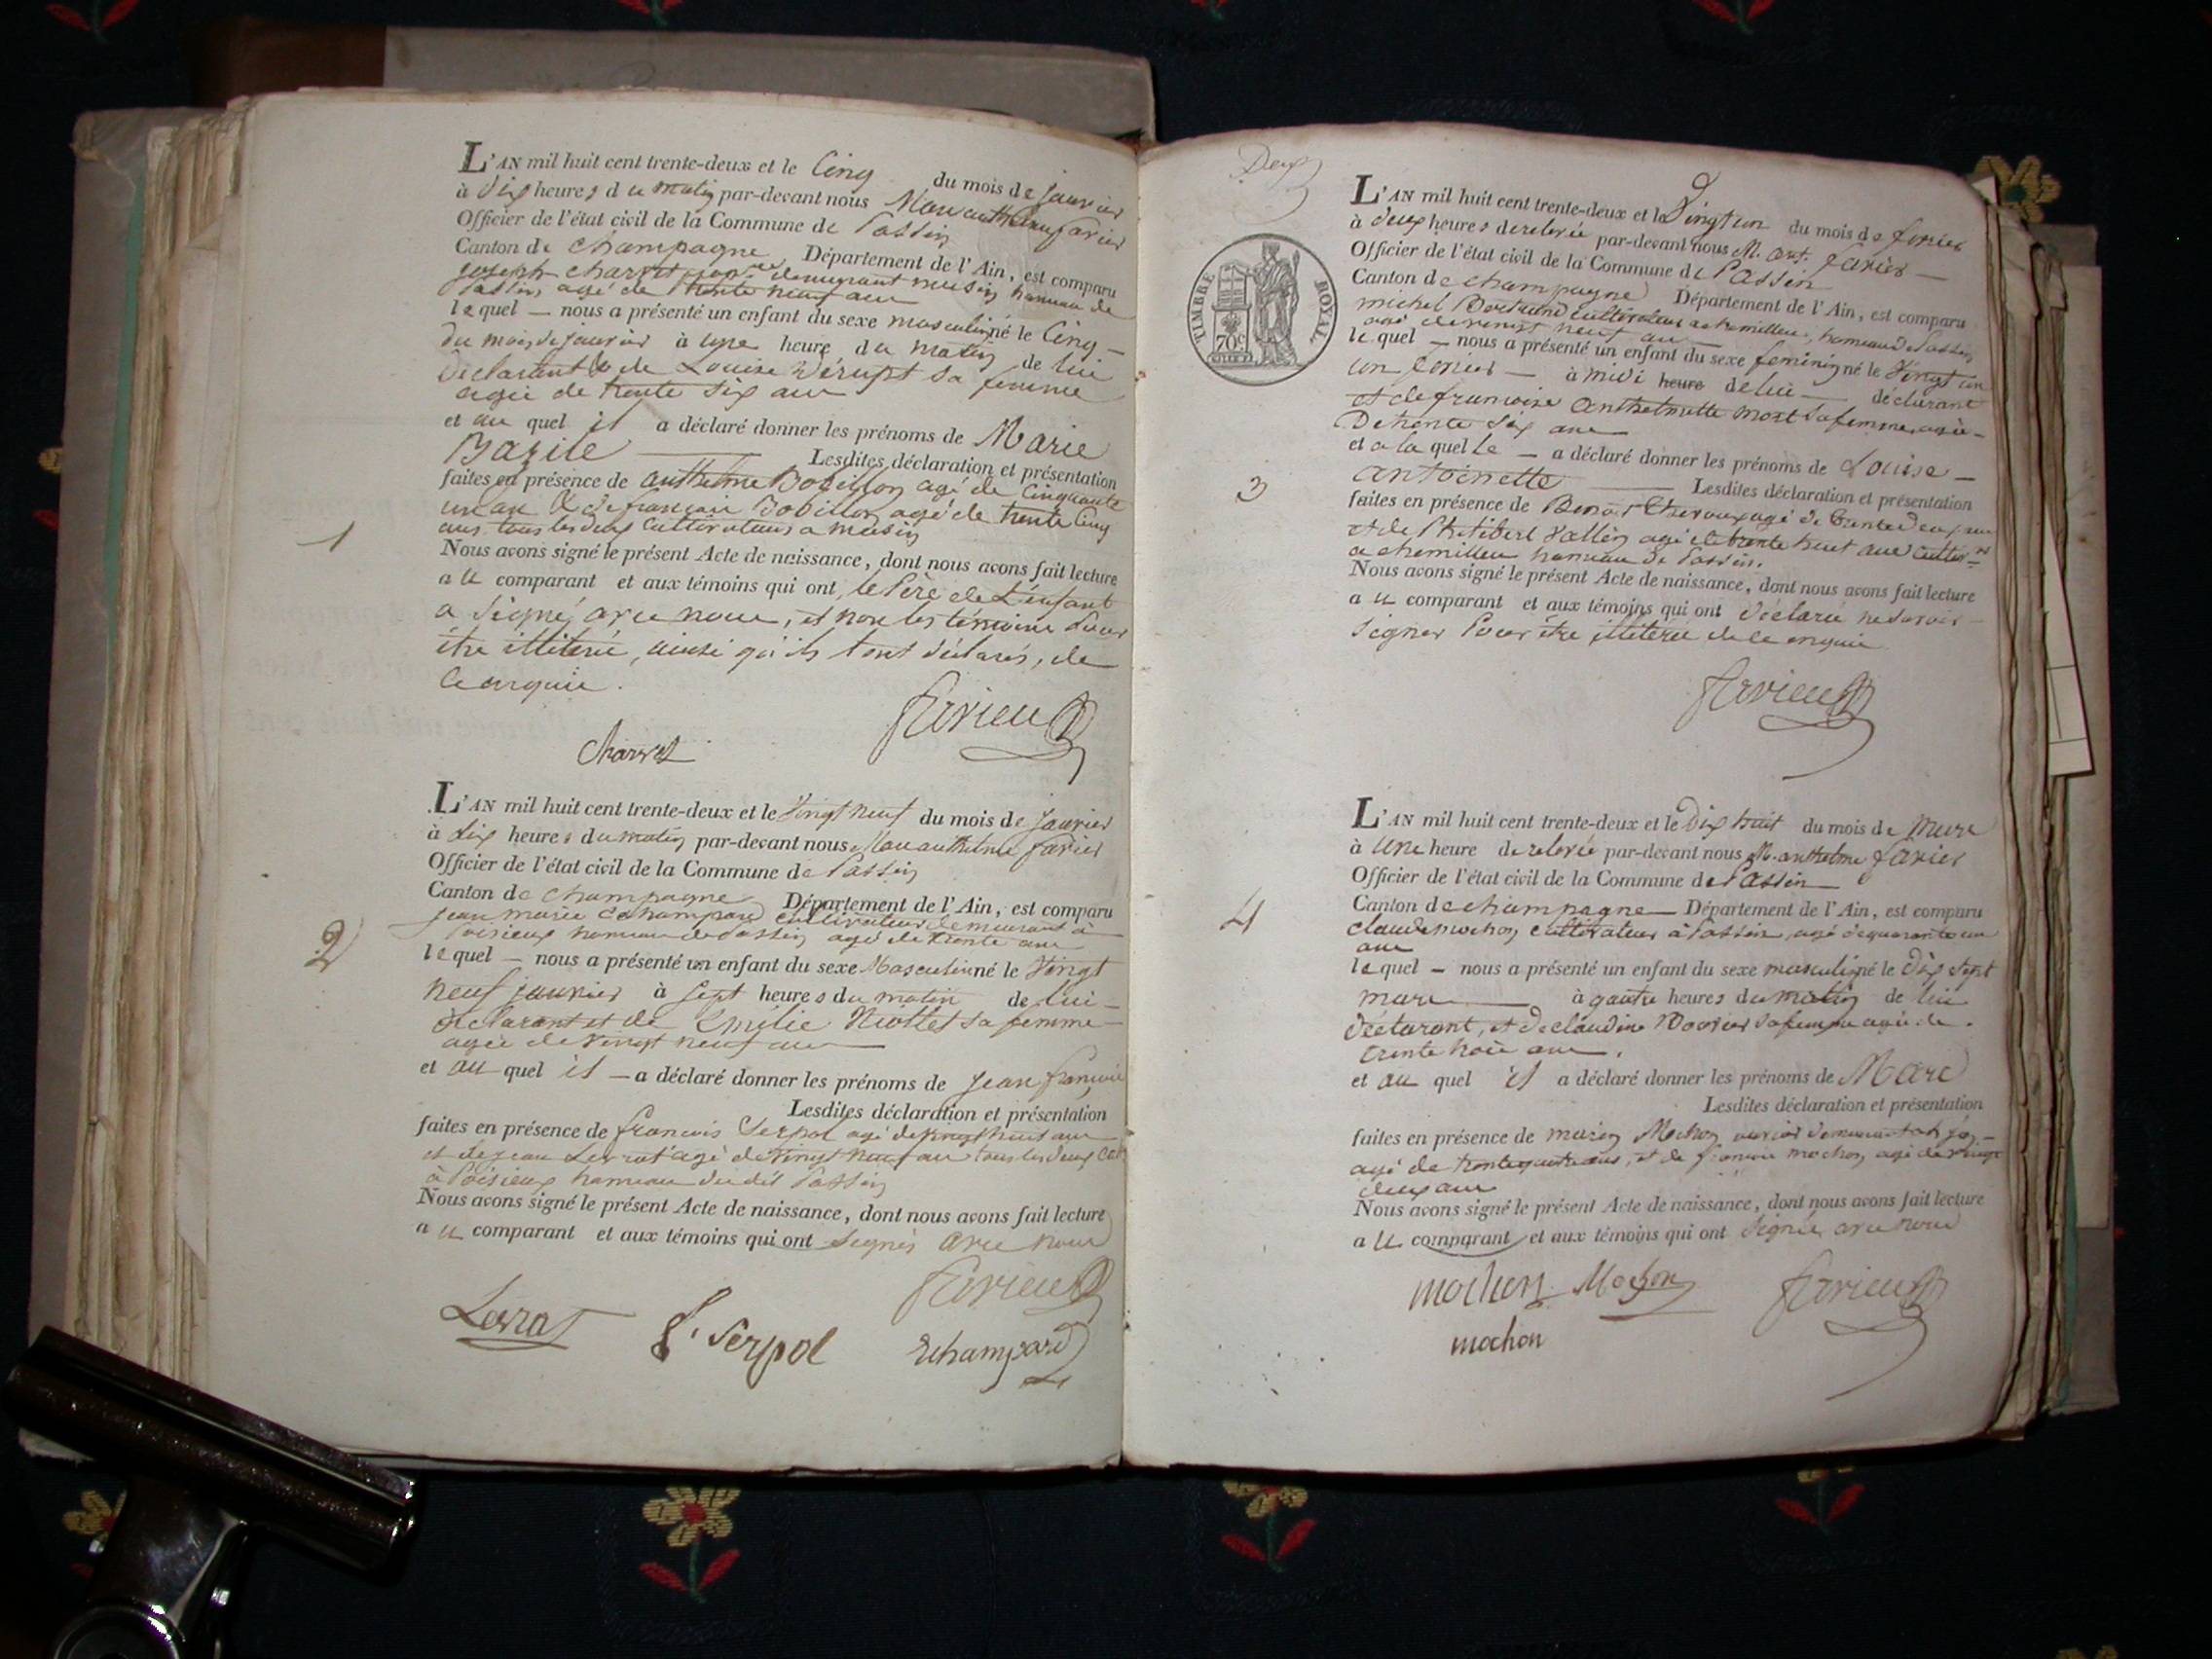 L'AN mil huit cent trente-deux et le Cinq du mois de janvier
à dix heures du matin par-devant nous Marc anthelme favier
Officier de l'état civil de la Commune de Passin
Canton de champagne Département de l'Ain, est comparu
joseph charvet demeurant musin hameau de
Passin, agé de trente neuf ans
lequel — nous a présenté un enfant du sexe masculin né le Cinq —
du mois de janvier à une heure du matin de lui
déclarant & de Louise sa femme
agée de trente six ans
et au quel il a déclaré donner les prénoms de Marie
Bazile — Lesdites déclaration et présentation
faites en présence de anthelme Bobillon agé de Cinquante
un an & de françois Bobillon agé de trente Cinq
ans tous les deux Cultivateurs a musin
1
Nous avons signé le présent Acte de naissance, dont nous avons fait lecture
au comparant et aux témoins qui ont, le Père de L'enfant
a signé avec nous, et non les témoins pour
être illiterés, ainsi qu'ils l'ont déclarés, de
ce enquis.
favier
Charvet
L'AN mil huit cent trente-deux et le vingt neuf du mois de janvier
à dix heures du matin par-devant nous Marc anthelme favier
Officier de l'état civil de la Commune de Passin
Canton de champagne Département de l'Ain, est comparu
jean marie Echampard cultivateur demeurant à
Poisieux hameau de Passin agé de trente ans
2
lequel — nous a présenté un enfant du sexe Masculin né le vingt
neuf janvier à sept heures du matin de lui —
déclarant et de Emélie sa femme —
agée de vingt neuf ans —
et au quel il — a déclaré donner les prénoms de jean françois
Lesdites déclaration et présentation
faites en présence de françois Serpol agé de vingt huit ans
et de jean Levrat agé de vingt neuf ans tous les deux
à Poisieux hameau du dit Passin
Nous avons signé le présent Acte de naissance, dont nous avons fait lecture
au comparant et aux témoins qui ont signés avec nous
favier
Levrat
f. Serpol
Echampard
Deux
TIMBRE ROYAL
70c
L'AN mil huit cent trente-deux et le vingt un du mois de fevrier
à deux heures de relevée par-devant nous M. ant. favier —
Officier de l'état civil de la Commune de Passin
Canton de champagne Département de l'Ain, est comparu
michel Bertrand cultivateur a chemillieu, hameau de Passin
agé de vingt neuf ans —
lequel — nous a présenté un enfant du sexe feminin né le vingt un
un fevrier — à midi heure de lui — déclarant
et de francoise Anthelmette mort sa femme, agée —
De trente six ans
et a la quelle — a déclaré donner les prénoms de Louise —
antoinette — Lesdites déclaration et présentation
3
faites en présence de Benoit agé de trente deux ans
et de Philibert Vallin agé de trente huit ans
a chemillieu hameau de Passin.
Nous avons signé le présent Acte de naissance, dont nous avons fait lecture
au comparant et aux témoins qui ont déclaré ne savoir
signer Pour être illiteré de ce enquis
favier
L'AN mil huit cent trente-deux et le Dix huit du mois de Mars
à une heure de relevée par-devant nous M. anthelme favier
Officier de l'état civil de la Commune de Passin
Canton de champagne — Département de l'Ain, est comparu
4
claude mochon cultivateur à Passin agé de quarante un
ans
lequel — nous a présenté un enfant du sexe masculin né le dix sept
mars — à quatre heures du matin de lui
déclarant, et de claudine sa femme agée de
trente trois ans.
et au quel il a déclaré donner les prénoms de Marc
Lesdites déclaration et présentation
faites en présence de Mochon
agé de trente quatre ans, et de françois mochon, agé de vingt
deux ans
Nous avons signé le présent Acte de naissance, dont nous avons fait lecture
au comparant et aux témoins qui ont signés avec nous
mochon Mochon favier
mochon